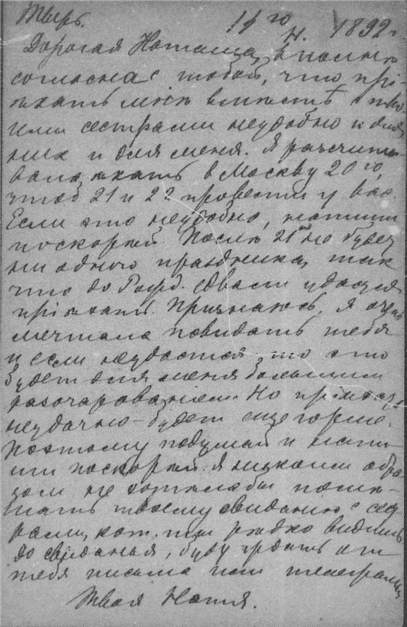 Тверь. 14го Н. 1892 г.
Дорогая Наташа, вполне
согласна с тобой, что прі-
ѣхать мнѣ вместѣ с тво
ими сестрами неудобно и для
них и для меня. Я разсчиты
вала, ѣхать в Москву 20го,
чтоб 21 и 22 провести у вас.
Если это неудобно, напиши
поскорѣй. Послѣ 21го не будет
ни одного праздника, так
что до Рожд. едвали удастся
пріѣхать. Признаюсь, я очень
мечтала повидать тебя
и если неудастся, то это
будет для меня большим
разочарованіем. Но пріѣхать
неудачно – будет еще горше.
Поэтому подумай и напи-
ши поскорѣй. Я никоим обра
зом не хотѣла бы помѣ-
шать твоему свиданію с сест
рами, кот. ты рѣдко видишь.
До свиданья, буду ждать от
тебя письма или телеграммы
Твоя Катя.